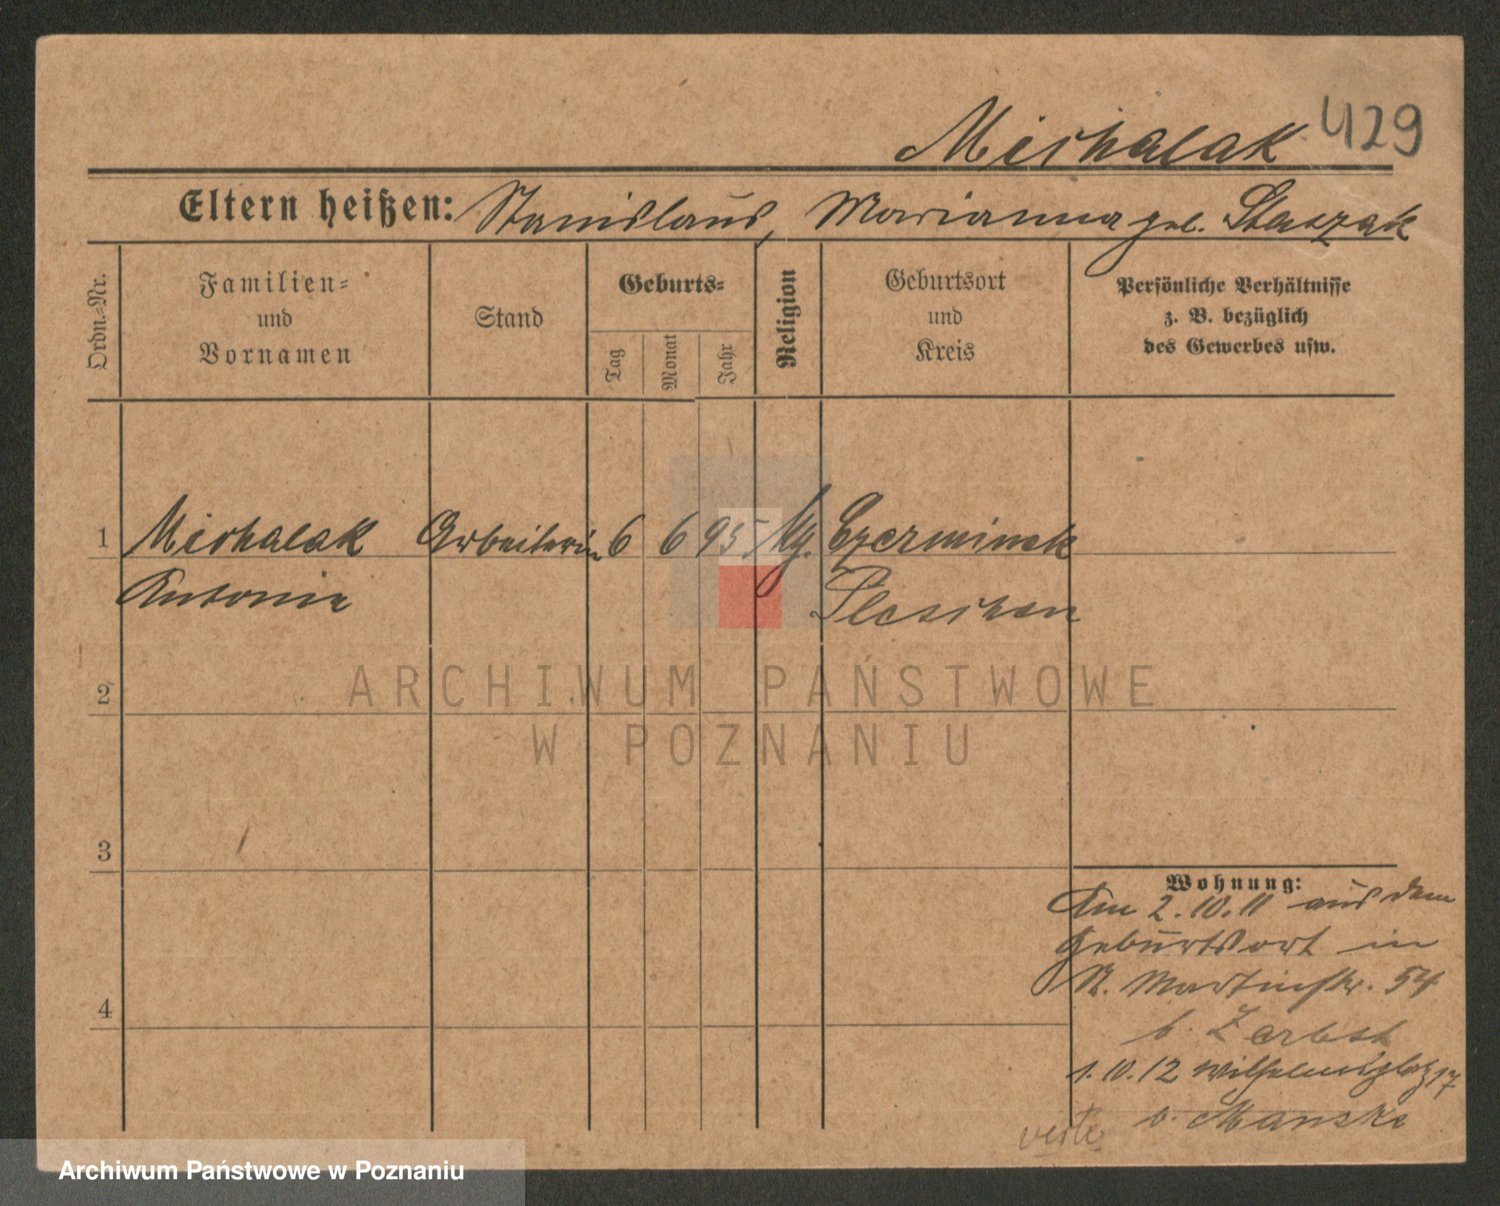 Michalak 429
Eltern heißen: Stanislaus, Marianna geb. Staszak
Ordn.-Nr.
Familien-
und
Vornamen
Stand
Geburts-
Tag
Monat
Jahr
Religion
Geburtsort
und
Kreis
Persönliche Verhältnisse
z. B. bezüglich
des Gewerbes usw.
1 Michalak Arbeiterin 6 6 95 Czerminek
Antonie Pleschen
2
ARCHIWUM PAŃSTWOWE
W POZNANIU
3
Wohnung:
Am 2.10.11 aus dem
Geburtsort in
St. Martinstr. 54
b. Zerbst
4
1.10.12 Wilhelmsplatz 17
b. Manske
verte
Archiwum Państwowe w Poznaniu